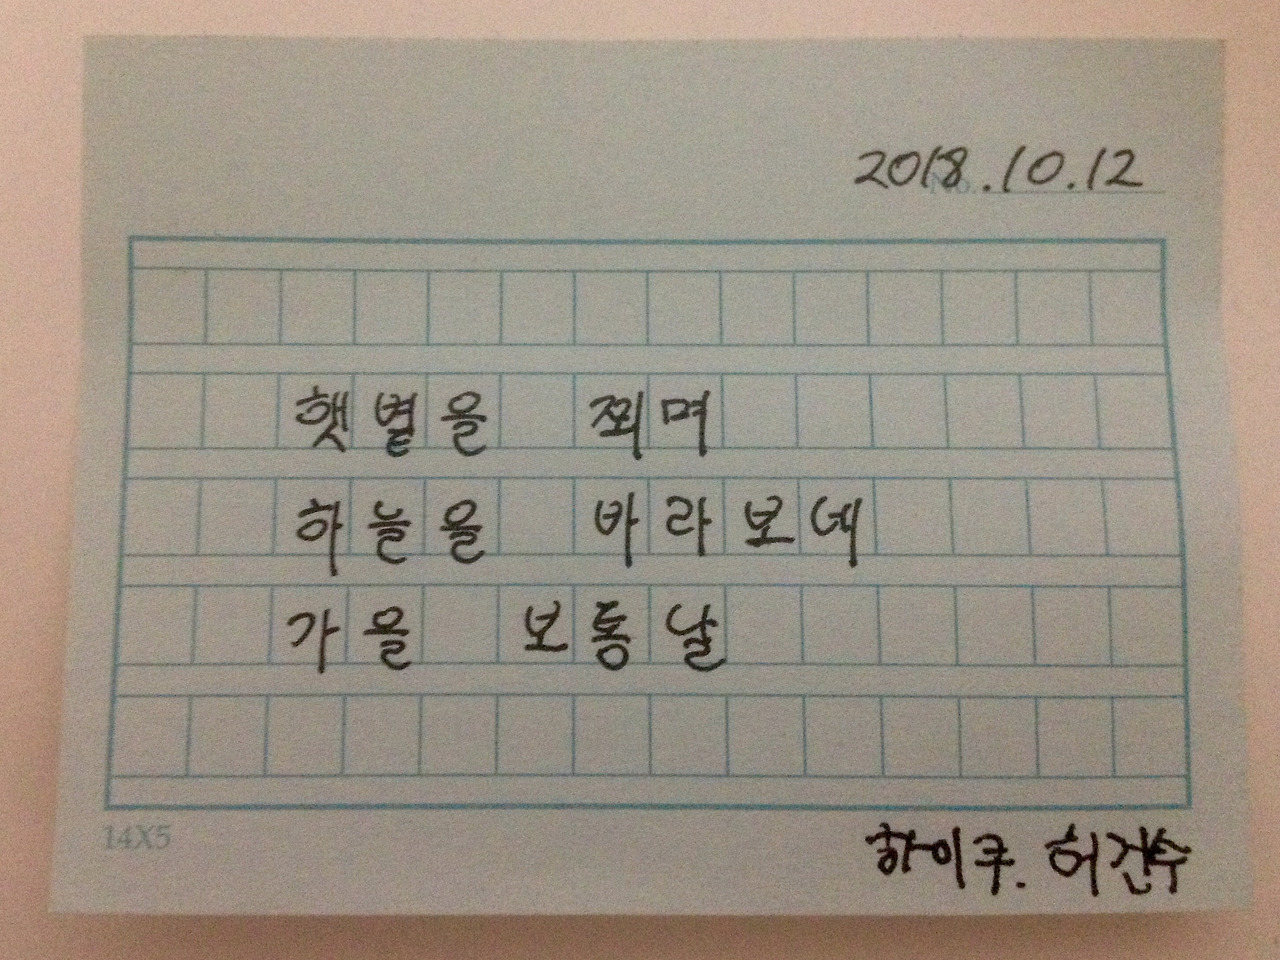 2018.10.12
No.
햇볕을 쬐며
하늘을 바라보네
가을 보통날
14X5
하이쿠. 허건수